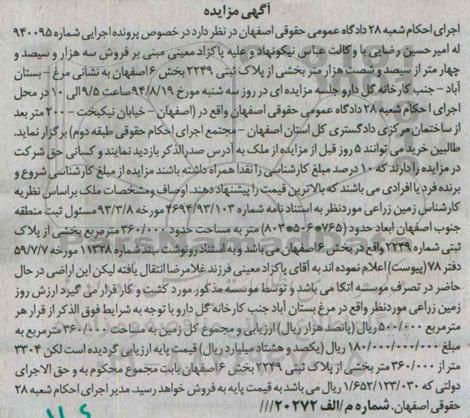 آگهی مزایده
اجرای احکام شعبه ۲۸ دادگاه عمومی حقوقی اصفهان در نظر دارد در خصوص پرونده اجرایی شماره ۹۴۰۰۹۵
له امیرحسین رضایی با وکالت عباس نیکونهاد و علیه پاکزاد معینی مبنی بر فروش سه هزار و سیصد و
چهار متر از سیصد و شصت هزار متر بخشی از پلاک ثبتی ۲۲۴۹ بخش ۶ اصفهان به نشانی مرغ - بستان
آباد - جنب کارخانه گل دارو جلسه مزایده ای در روز سه شنبه مورخ ۹۴/۸/۱۹ ساعت ۹/۵ الی ۱۰ در محل
اجرای احکام شعبه ۲۸ دادگاه عمومی حقوقی اصفهان واقع در (اصفهان - خیابان نیکبخت - ۲۰۰ متر بعد
از ساختمان مرکزی دادگستری کل استان اصفهان - مجتمع اجرای احکام حقوقی طبقه دوم) برگزار نماید.
طالبین خرید می توانند ۵ روز قبل از مزایده از ملک به آدرس صدرالذکر بازدید نمایند و کسانی حق شرکت
در مزایده را دارند که ۱۰ درصد مبلغ کارشناسی را نقدا همراه داشته باشند مزایده از مبلغ کارشناسی شروع و
برنده فرد یا افرادی می باشند که بالاترین قیمت را پیشنهاد دهند. اوصاف و مشخصات ملک براساس نظریه
کارشناس زمین زراعی موردنظر به استناد نامه شماره ۴۶۹۴/۹۳/۱۰۳ مورخه ۹۳/۳/۸ مسئول ثبت منطقه
جنوب اصفهان ابعاد حدود (۷۶۵*۵۰۶*۸۰۳) متر به مساحت حدود ۳۶۰/۰۰۰ مترمربع بخشی از پلاک
ثبتی شماره ۲۲۴۹ واقع در بخش ۶ اصفهان می باشد و به استناد رونوشت سند شماره ۱۱۳۲۸ مورخه ۵۹/۷/۷
دفتر ۷۸ (پیوست) اعلام نموده اند به آقای پاکزاد معینی فرزند غلامرضا انتقال یافته لیکن این اراضی در حال
حاضر در تصرف موسسه اتکا می باشد و توسط موسسه مذکور مورد کشت و کار قرار می گیرد ارزش روز
زمین زراعی موردنظر واقع در مرغ بستان آباد جنب کارخانه گل دارو با توجه به شرایط فوق الذکر از قرار هر
مترمربع ۵۰۰/۰۰۰ ریال (پانصد هزار ریال) ارزیابی و مجموع کل زمین به مساحت ۳۶۰/۰۰۰ مترمربع به
مبلغ ۱۸۰/۰۰۰/۰۰۰/۰۰۰ ریال (یکصد و هشتاد میلیارد ریال) قیمت پایه ارزیابی گردیده است لکن ۳۳۰۴
متر از ۳۶۰/۰۰۰ متر بخشی از پلاک ثبتی ۲۲۴۹ بخش ۶ اصفهان بابت مجموع محکوم به و حق الاجرای
دولتی که ۱/۶۵۲/۱۲۳/۰۳۰ ریال می باشد به قیمت پایه به فروش خواهد رسید. مدیر اجرای احکام شعبه ۲۸
حقوقی اصفهان. شماره م/الف ۲۰۲۷۲///